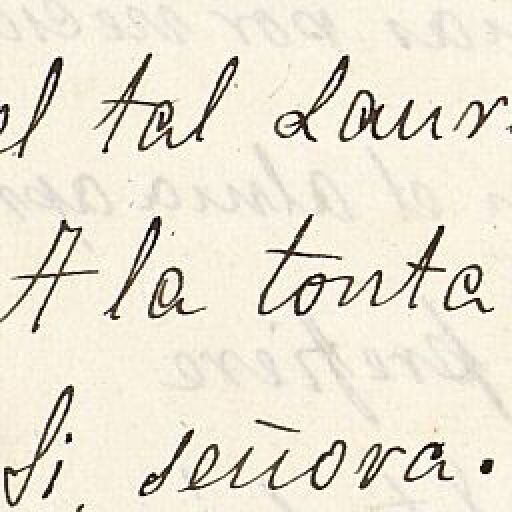 el tal Laur
A la tonta
Si, señora.